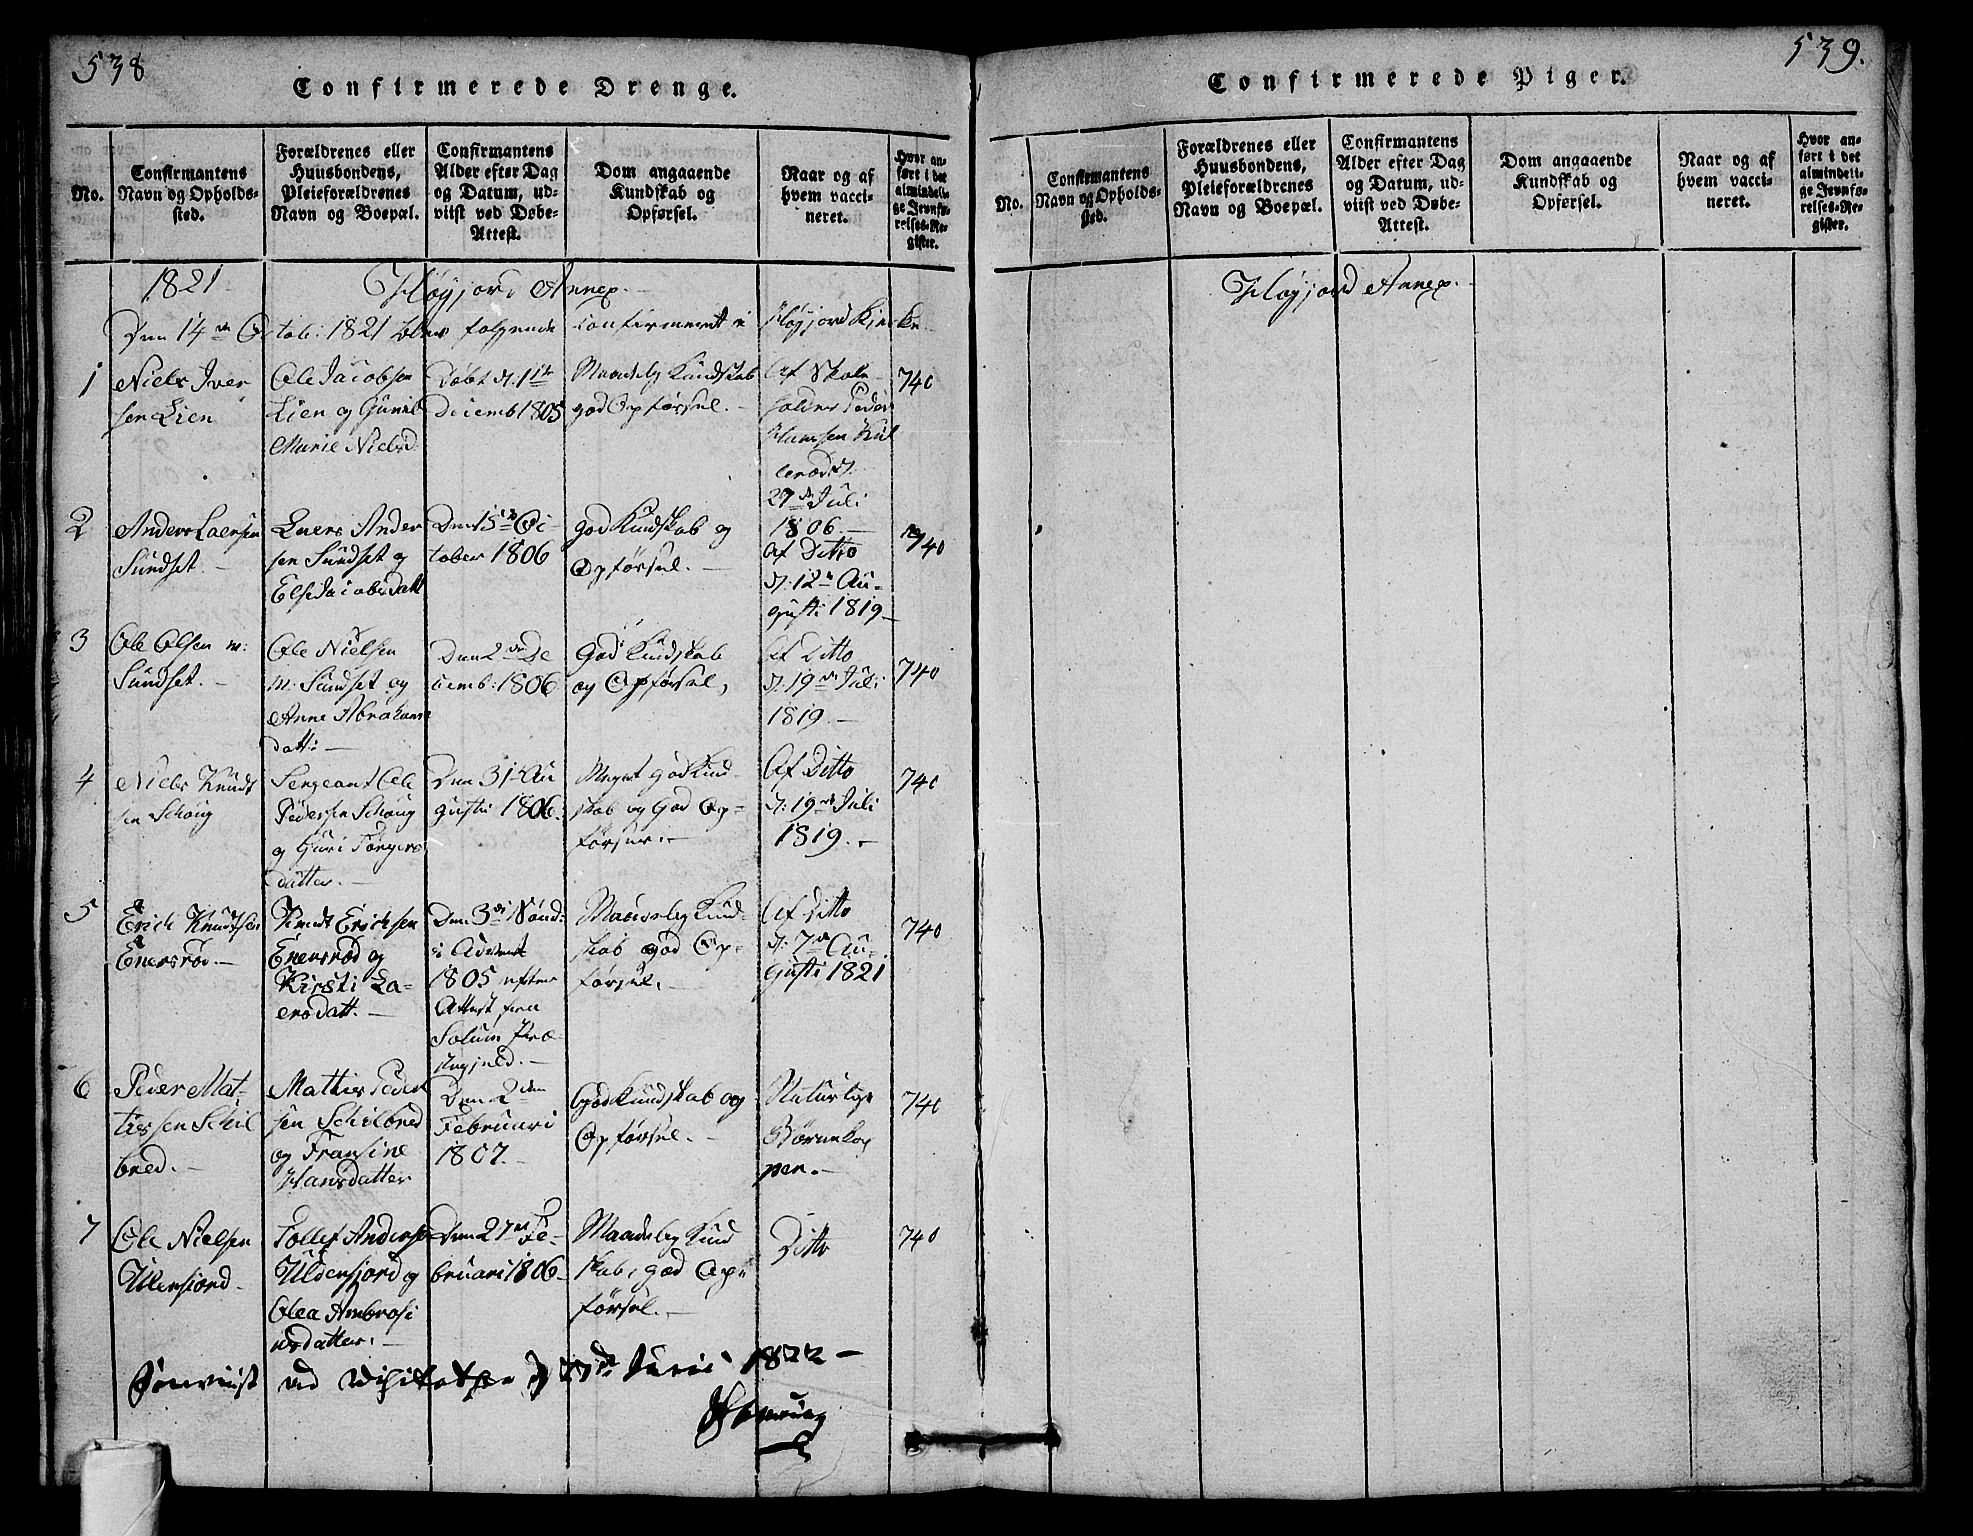 538
Confirmerede Drenge.
No.
Confirmantens
Navn og Opholds-
sted.
Forældrenes eller
Huusbondens,
Pleieforældrenes
Navn og Boepæl.
Confirmantens
Alder efter Dag
og Datum, ud-
viist ved Døbe-
Attest.
Dom angaaende
Kundskab og
Opførsel.
Naar og af
hvem vacci-
neret.
Hvor an-
ført i det
almindeli-
ge Jevnfø-
relses-Re-
gister.
1821 Høyjord Annex.
Den 14de Octob: 1821 blev følgende confirmeret i Høyjord Kircke.
1
Niels Iver
sen Lien
Ole Jacobsen
Lien og Gunil
Marie Nielsd
Døbt d: 1ste
Decemb 1805
Maadelig Kundskab
god Opførsel. –
Af Skole-
holder Peder
27de Juli
1806. –
740
2
Anders Laersen
Sundset. –
Laers Ander
sen Sundset og
Else Jacobsdatt
Den 15de Oc-
tober 1806
god Kundskab og
Opførsel. –
Af Ditto
d: 12te Au-
gusti 1819 –
740
3
Ole Olsen m:
Sundset. –
Ole Nielsen
m: Sundset og
Anne Abraham
datt: –
Den 2den De
cemb: 1806
God Kundskab
og Opførsel,
Af Ditto
d: 19de Juli
1819. –
740
4
Niels Knudt
sen Schoug
Sergeant Ole
Pedersen Schoug
og Guri Torgers
datter. –
Den 31te Au
gusti 1806.
Meget god Kund-
skab og God Op-
førsel. –
Af Ditto
d: 19de Juli
1819. –
740
5
Erich Knudtsen
Enersrød. –
Knudt Erichsen
Enersrød og
Kirsti La-
ersdatt. –
Den 3die Sønd:
i Advent
1805 efter
Attest fra
Solum Præ-
stegjeld. –
Maadelig Kund-
skab god Op-
førsel. –
Af Ditto
d: 7de Au-
gusti 1821
740
6
Peder Mat-
tiesen Schil
bred. –
Mathis Peder
sen Schilbred
og Fransine
Hansdatter
Den 2den
Februari
1807. –
God Kundskab og
Opførsel. –
Naturlige
Børnekop
per. –
740
7
Ole Nielsen
Ulensiord –
Tollef Anderse
Uldensjord og
Olea Ambrosi
usdatter. –
Den 27de Fe-
bruari 1806 –
Maadelig Kund
skab, god Op-
førsel. –
Ditto
740
ved Visitatsen d 27de Junii 1822 –
539.
Confirmerede Piger.
No.
Confirmantens
Navn og Opholds-
sted.
Forældrenes eller
Huusbondens,
Pleieforældrenes
Navn og Boepæl.
Confirmantens
Alder efter Dag
og Datum, ud-
viist ved Døbe-
Attest.
Dom angaaende
Kundskab og
Opførsel.
Naar og af
hvem vacci-
neret.
Hvor an-
ført i det
almindeli-
ge Jevnfø-
relses-Re-
gister.
Høyjord Annex.